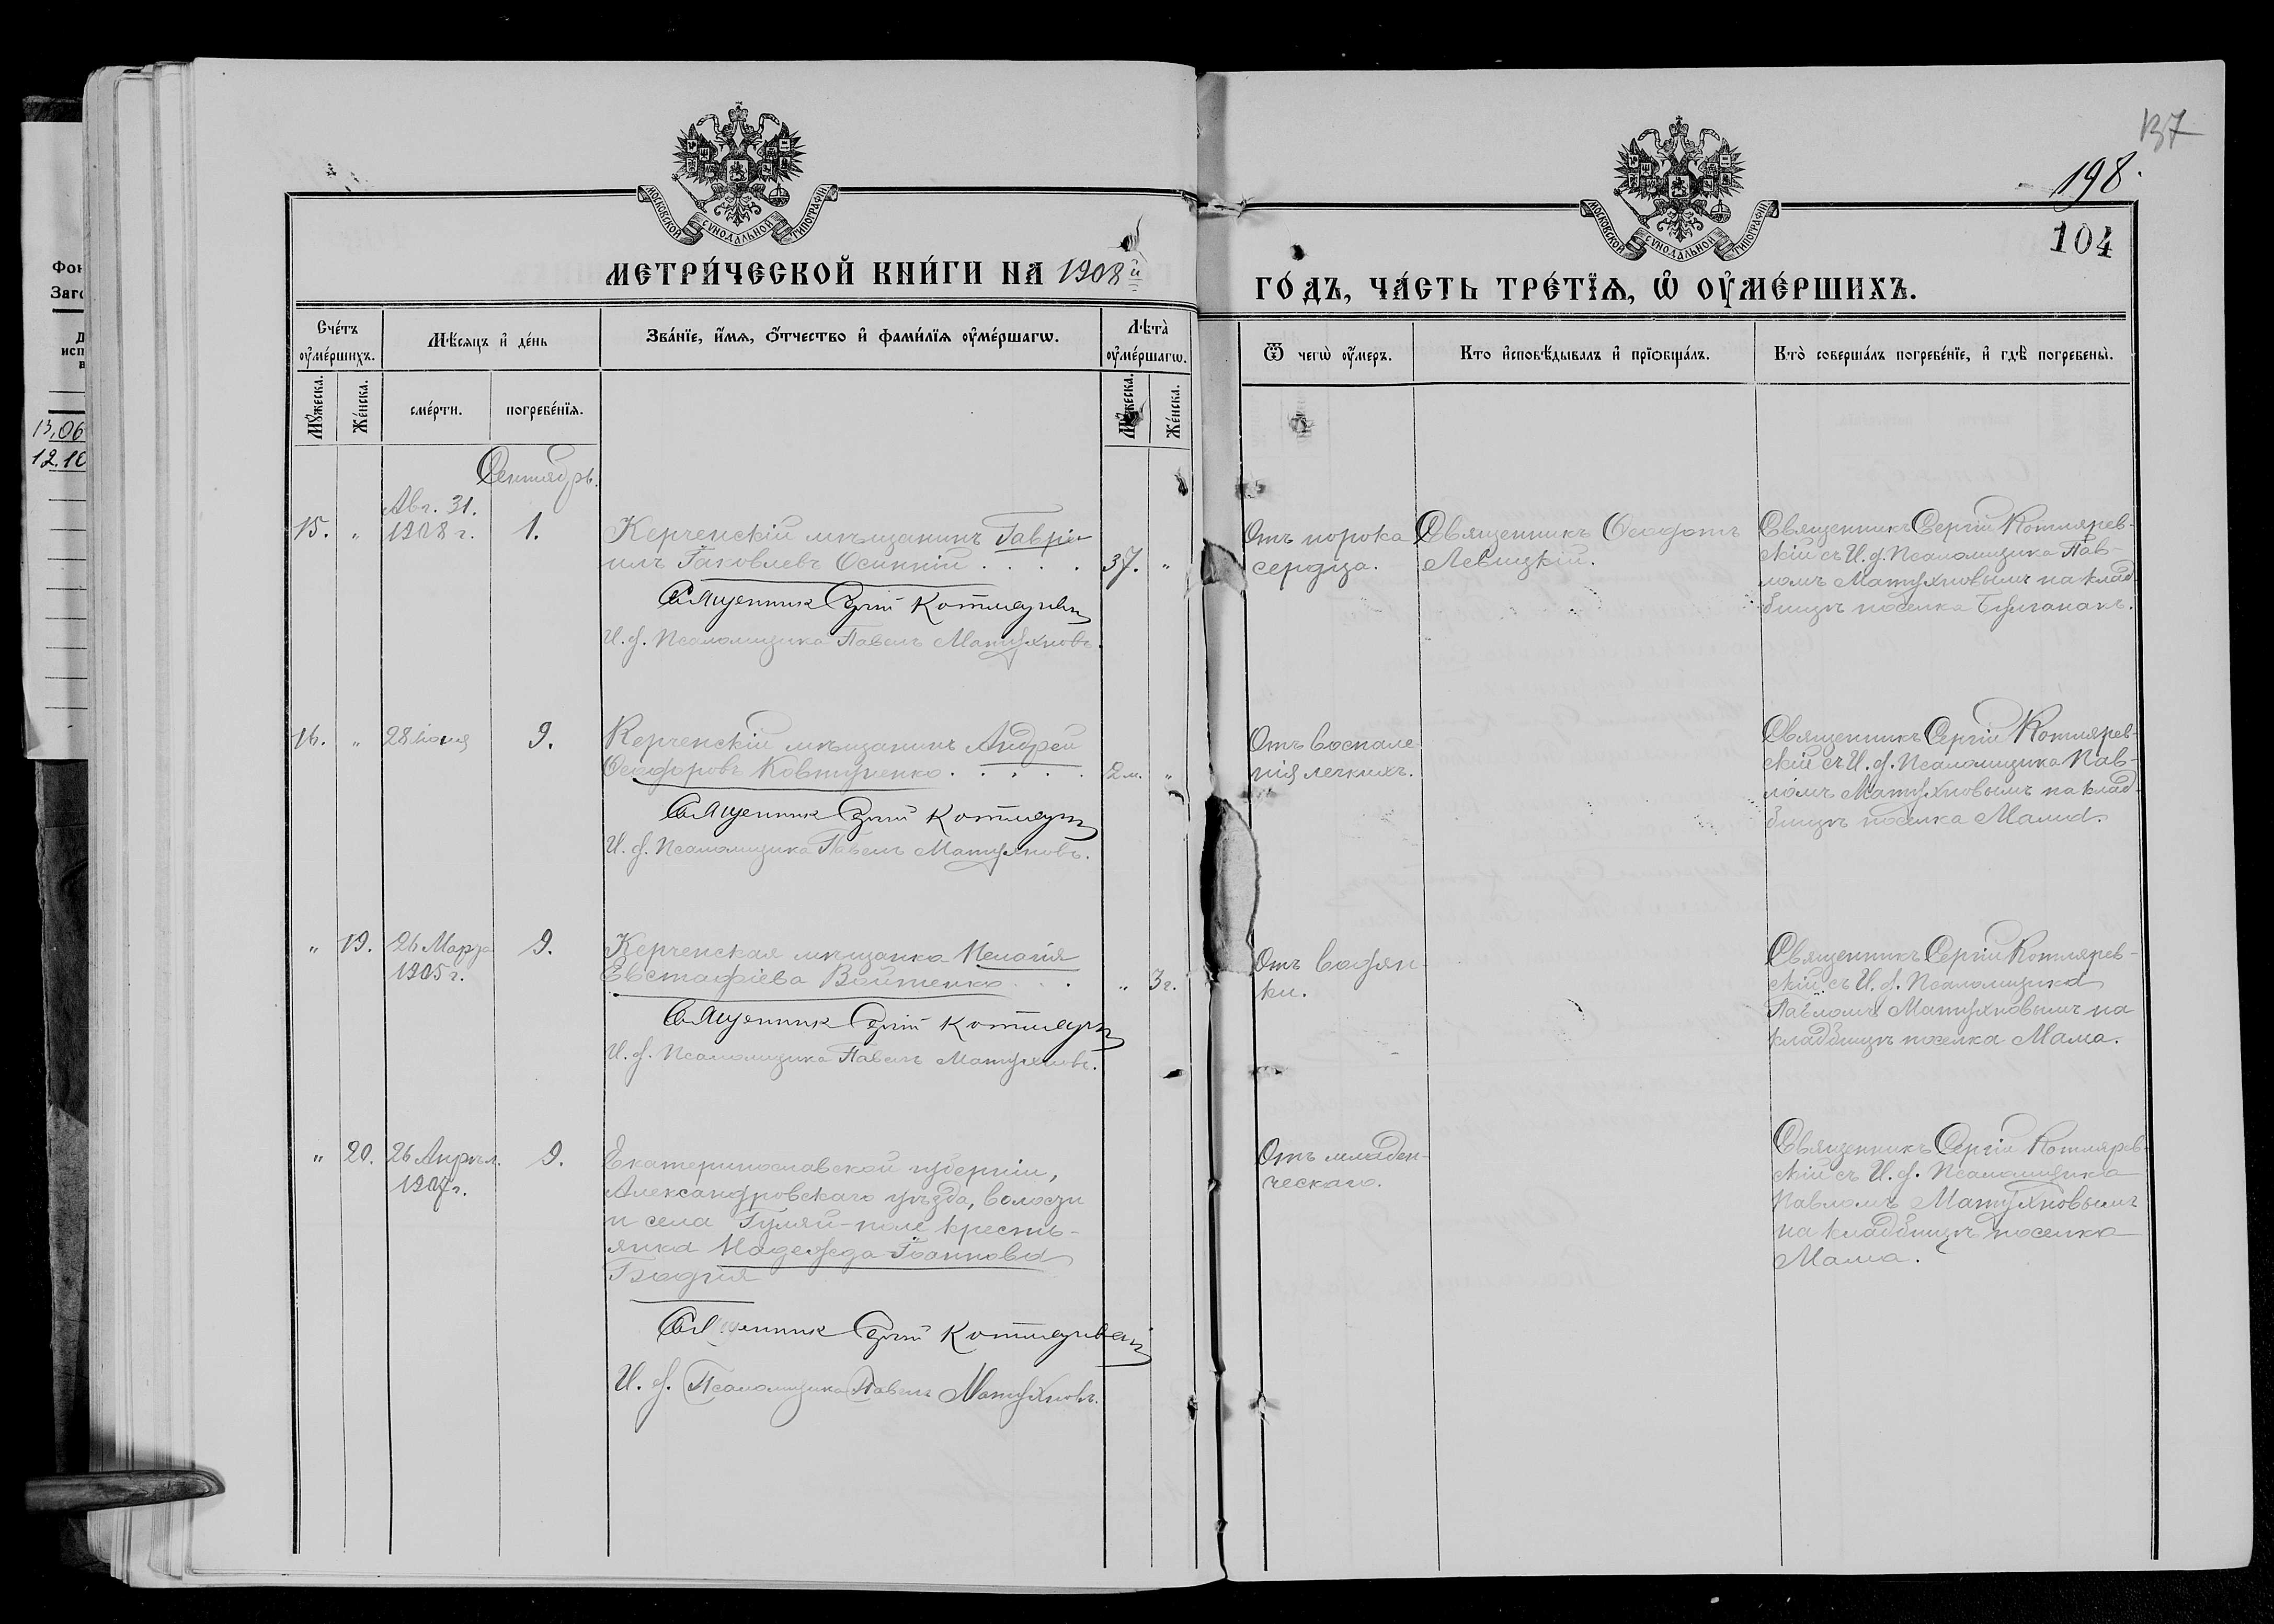 137
198.
104
МОСКОВСКОЙ СѴНОДАЛЬНОЙ ТИПОГРАФІИ
МОСКОВСКОЙ СѴНОДАЛЬНОЙ ТИПОГРАФІИ
МЕТРИ́ЧЕСКОЙ КНИ́ГИ НА 1908й
ГО́ДЪ, ЧА́СТЬ ТРЕ́ТІѦ, Ѡ ОУ҆МЕ́РШИХЪ.
Сче́тъ оу҆ме́ршихъ.
Мѣ́сяцъ и҆ де́нь
Зва́нїе, и҆́мѧ, ѻ҆́тчество и҆ фами́лїѧ оу҆ме́ршагѡ.
Лѣта̀ оу҆ме́ршагѡ.
Ѿ чегѡ̀ оу҆́меръ.
Кто и҆сповѣ́дывалъ и҆ прїѻбща́лъ.
Кто̀ соверша́лъ погребе́нїе, и҆ гдѣ̀ погребены̀.
Мꙋ́жеска.
Же́нска.
сме́рти.
погребе́нїѧ.
Мꙋ́жеска.
Же́нска.
Фон
Заго
исп
13.06
12.10
Сентябрь.
Авг. 31.
15. " 1908 г. 1.
Керченскій мѣщанинъ Гаврі-
илъ Іаковлевъ Осинній . . . . 37. "
Священник Сергій Котляревскій
И. д. Псаломщика Павелъ Матухновъ.
Отъ порока
сердца.
Священникъ Ѳеофотъ
Левицкій.
Священникъ Сергій Котлярев-
скій съ И. д. Псаломщика Пав-
ломъ Матухновымъ на клад-
бищѣ поселка Булганакъ.
16. " 28 Іюня 9.
Керченскій мѣщанинъ Андрей
Ѳеодоровъ Ковтуненко . . . . . 2 м. "
Священник Сергій Котляр
И. д. Псаломщика Павелъ Матухновъ.
Отъ воспале-
нія легкихъ.
Священникъ Сергій Котлярев-
скій съ И. д. Псаломщика Пав-
ломъ Матухновымъ на клад-
бищѣ поселка Мама.
" 19. 26 Марта 9.
1905 г.
Керченская мѣщанка Пелагія
Евстафіева Войтенко . . . " 3 г.
Священник Сергій Котляр
И. д. Псаломщика Павелъ Матухновъ.
Отъ водян-
ки.
Священникъ Сергій Котлярев-
скій съ И. д. Псаломщика
Павломъ Матухновымъ на
кладбищѣ поселка Мама.
" 20. 26 Апрѣл. 9.
1907 г.
Екатеринославской губерніи,
Александровскаго уѣзда, волости
и села Гуляй-поле кресть-
янка Надежда Іоаннова
Священник Сергій Котляревскій
И. д. Псаломщика Павелъ Матухновъ.
Отъ младен-
ческаго.
Священникъ Сергій Котлярев-
скій съ И. д. Псаломщика
Павломъ Матухновымъ
на кладбищѣ поселка
Мама.